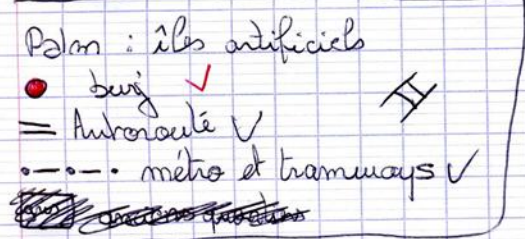 Palm : îles artificiels
burj
Autorouté
métro et tramways